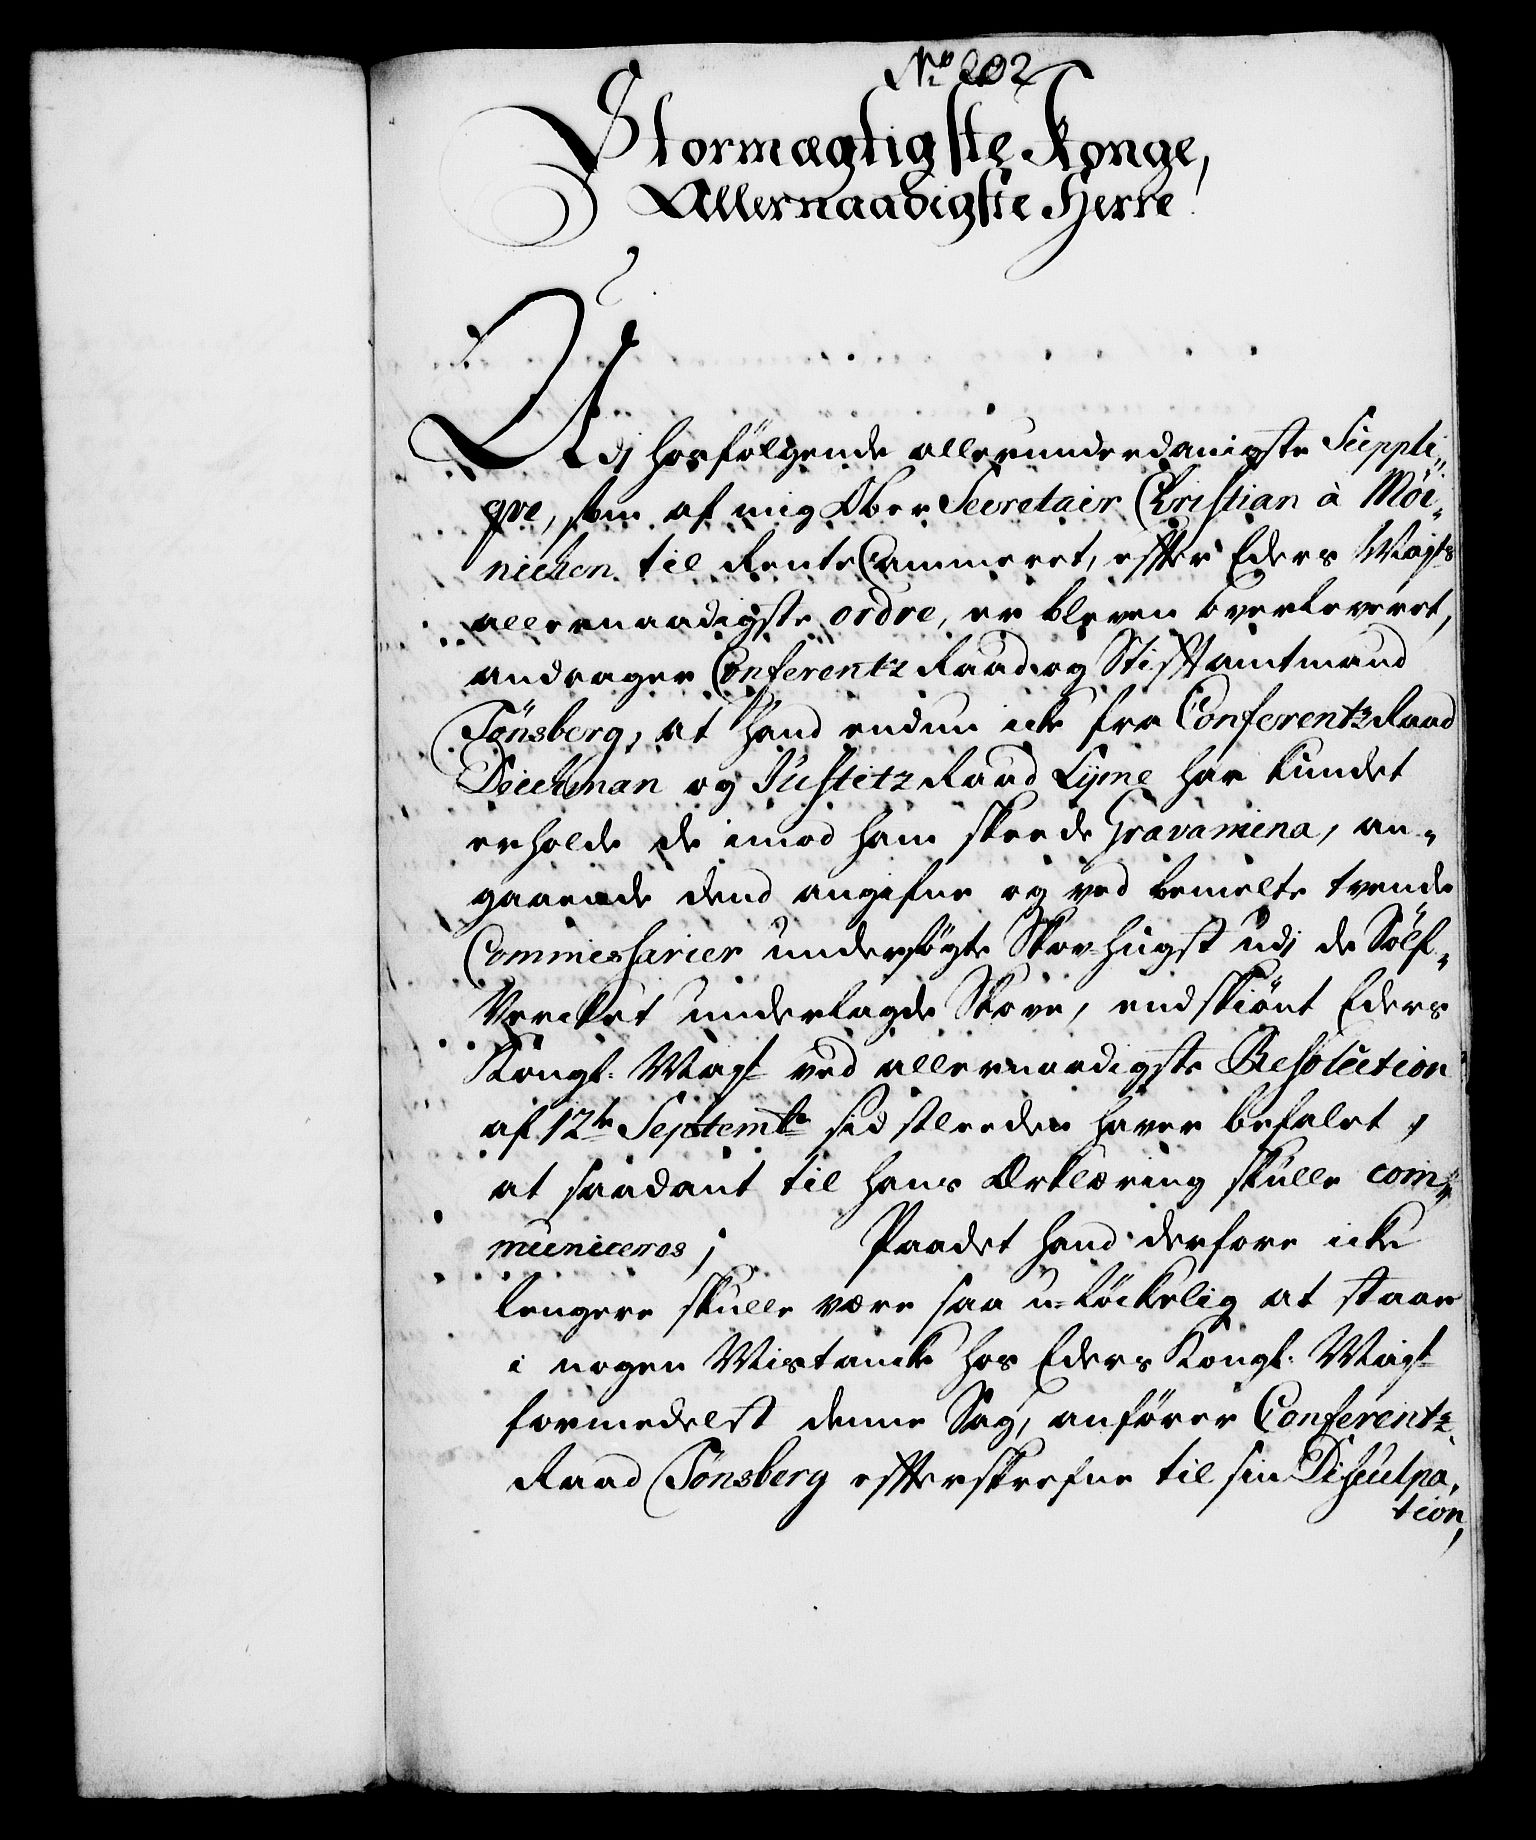 No 202
Stormægtigste Konge,
Allernaadigste Herre!
Udj hosfølgende allerunderdanigste Suppli-
qve, som af mig Ober Secretair Christian à Möi-
nichen til RenteCammeret, efter Eders Mayts
allernaadigste ordre, er bleven overleveret,
andrager Conferentz Raad og Stiftamtmand
Tönsberg, at hand endnu icke fra Conferentz Raad
Deichman og Justitz Raad Lyme har kundet
erholde de imod ham skeede Gravamina, an-
gaaende dend angifne og ved bemelte tvende
Commissarier undersøgte Skov-hugst udj de Sölf-
Vercket underlagde Skove, endskiönt Eders
Kongl. Mayt ved allernaadigste Resolution
af 12te Septembr sidstleeden haver befalet,
at saadant til hans Erklæring skulle com-
municeres; Paadet hand derfore icke
lengere skulle være saa u-löckelig at staae
i nogen Mistancke hos Eders Kongl. Mayt
formedelst denne Sag, anförer Conferentz
Raad Tönsberg efterskrefne til sin Disculpa-
tion,